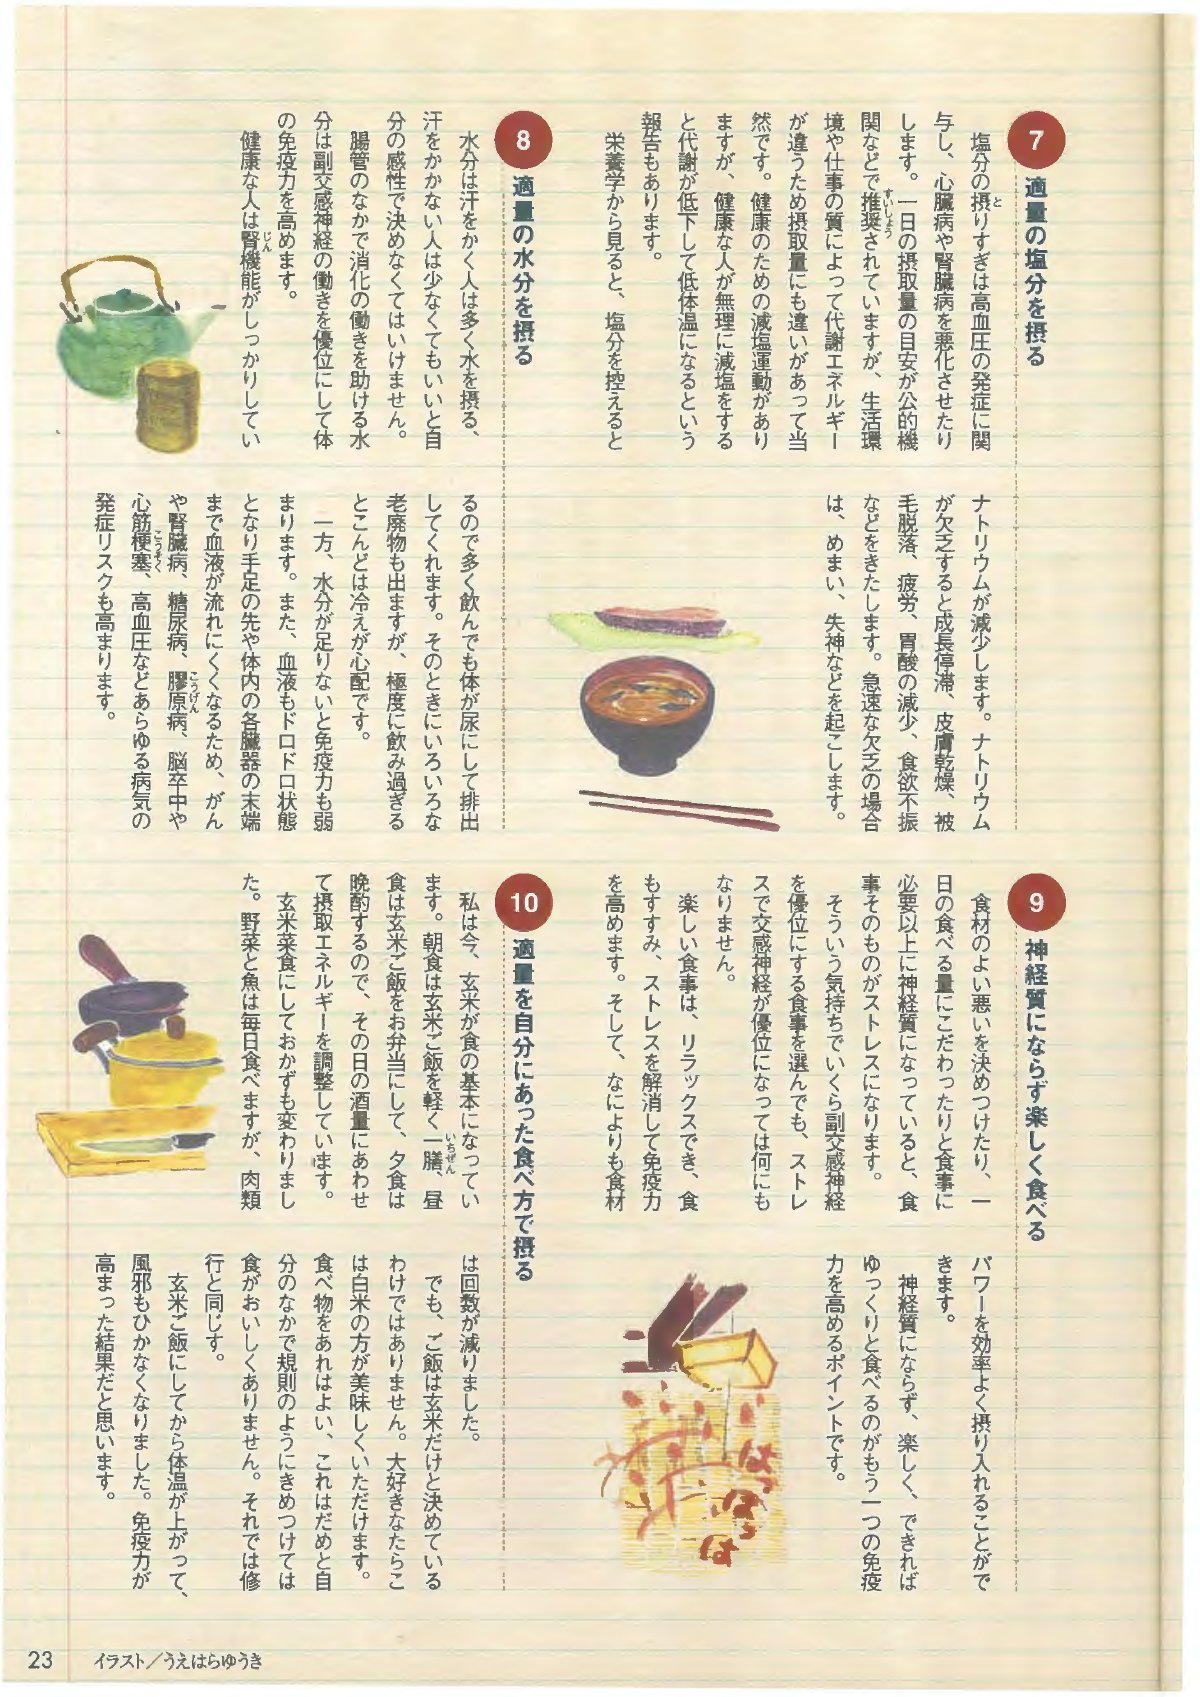 7 適量の塩分を摂る
塩分の摂りすぎは高血圧の発症に関
与し、心臓病や腎臓病を悪化させたり
します。一日の摂取量の目安が公的機
関などで推奨されていますが、生活環
境や仕事の質によって代謝エネルギー
が違うため摂取量にも違いがあって当
然です。健康のための減塩運動があり
ますが、健康な人が無理に減塩をする
と代謝が低下して低体温になるという
報告もあります。
栄養学から見ると、塩分を控えると
ナトリウムが減少します。ナトリウム
が欠乏すると成長停滞、皮膚乾燥、被
毛脱落、疲労、胃酸の減少、食欲不振
などをきたします。急速な欠乏の場合
は、めまい、失神などを起こします。
8 適量の水分を摂る
水分は汗をかく人は多く水を摂る、
汗をかかない人は少なくてもいいと自
分の感性で決めなくてはいけません。
腸管のなかで消化の働きを助ける水
分は副交感神経の働きを優位にして体
の免疫力を高めます。
健康な人は腎機能がしっかりしてい
るので多く飲んでも体が尿にして排出
してくれます。そのときにいろいろな
老廃物も出ますが、極度に飲み過ぎる
とこんどは冷えが心配です。
一方、水分が足りないと免疫力も弱
まります。また、血液もドロドロ状態
となり手足の先や体内の各臓器の末端
まで血液が流れにくくなるため、がん
や腎臓病、糖尿病、膠原病、脳卒中や
心筋梗塞、高血圧などあらゆる病気の
発症リスクも高まります。
9 神経質にならず楽しく食べる
食材のよい悪いを決めつけたり、一
日の食べる量にこだわったりと食事に
必要以上に神経質になっていると、食
事そのものがストレスになります。
そういう気持ちでいくら副交感神経
を優位にする食事を選んでも、ストレ
スで交感神経が優位になっては何にも
なりません。
楽しい食事は、リラックスでき、食
もすすみ、ストレスを解消して免疫力
を高めます。そして、なによりも食材
パワーを効率よく摂り入れることがで
きます。
神経質にならず、楽しく、できれば
ゆっくりと食べるのがもう一つの免疫
力を高めるポイントです。
はっ
ぱっ
は
10 適量を自分にあった食べ方で摂る
私は今、玄米が食の基本になってい
ます。朝食は玄米ご飯を軽く一膳、昼
食は玄米ご飯をお弁当にして、夕食は
晩酌するので、その日の酒量にあわせ
て摂取エネルギーを調整しています。
玄米菜食にしておかずも変わりまし
た。野菜と魚は毎日食べますが、肉類
は回数が減りました。
でも、ご飯は玄米だけと決めている
わけではありません。大好きなたらこ
は白米の方が美味しくいただけます。
食べ物をあれはよい、これはだめと自
分のなかで規則のようにきめつけては
食がおいしくありません。それでは修
行と同じす。
玄米ご飯にしてから体温が上がって、
風邪もひかなくなりました。免疫力が
高まった結果だと思います。
23 イラスト／うえはらゆうき